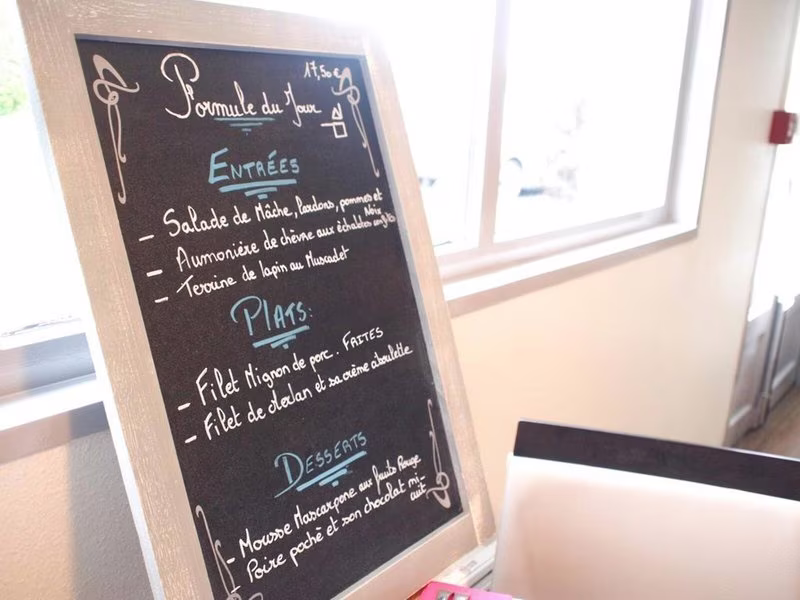 17,50€
Formule du Jour
ENTRÉES
- Salade de Mâche, Lardons, pommes et Noix
- Aumonière de chèvre aux échalotes confites
- Terrine de lapin au Muscadet
PLATS:
- Filet Mignon de porc. FRITES
- Filet de Merlan et sa crème ciboulette
DESSERTS
- Mousse Mascarpone aux fruits Rouge
- Poire pochè et son chocolat mi-cuit